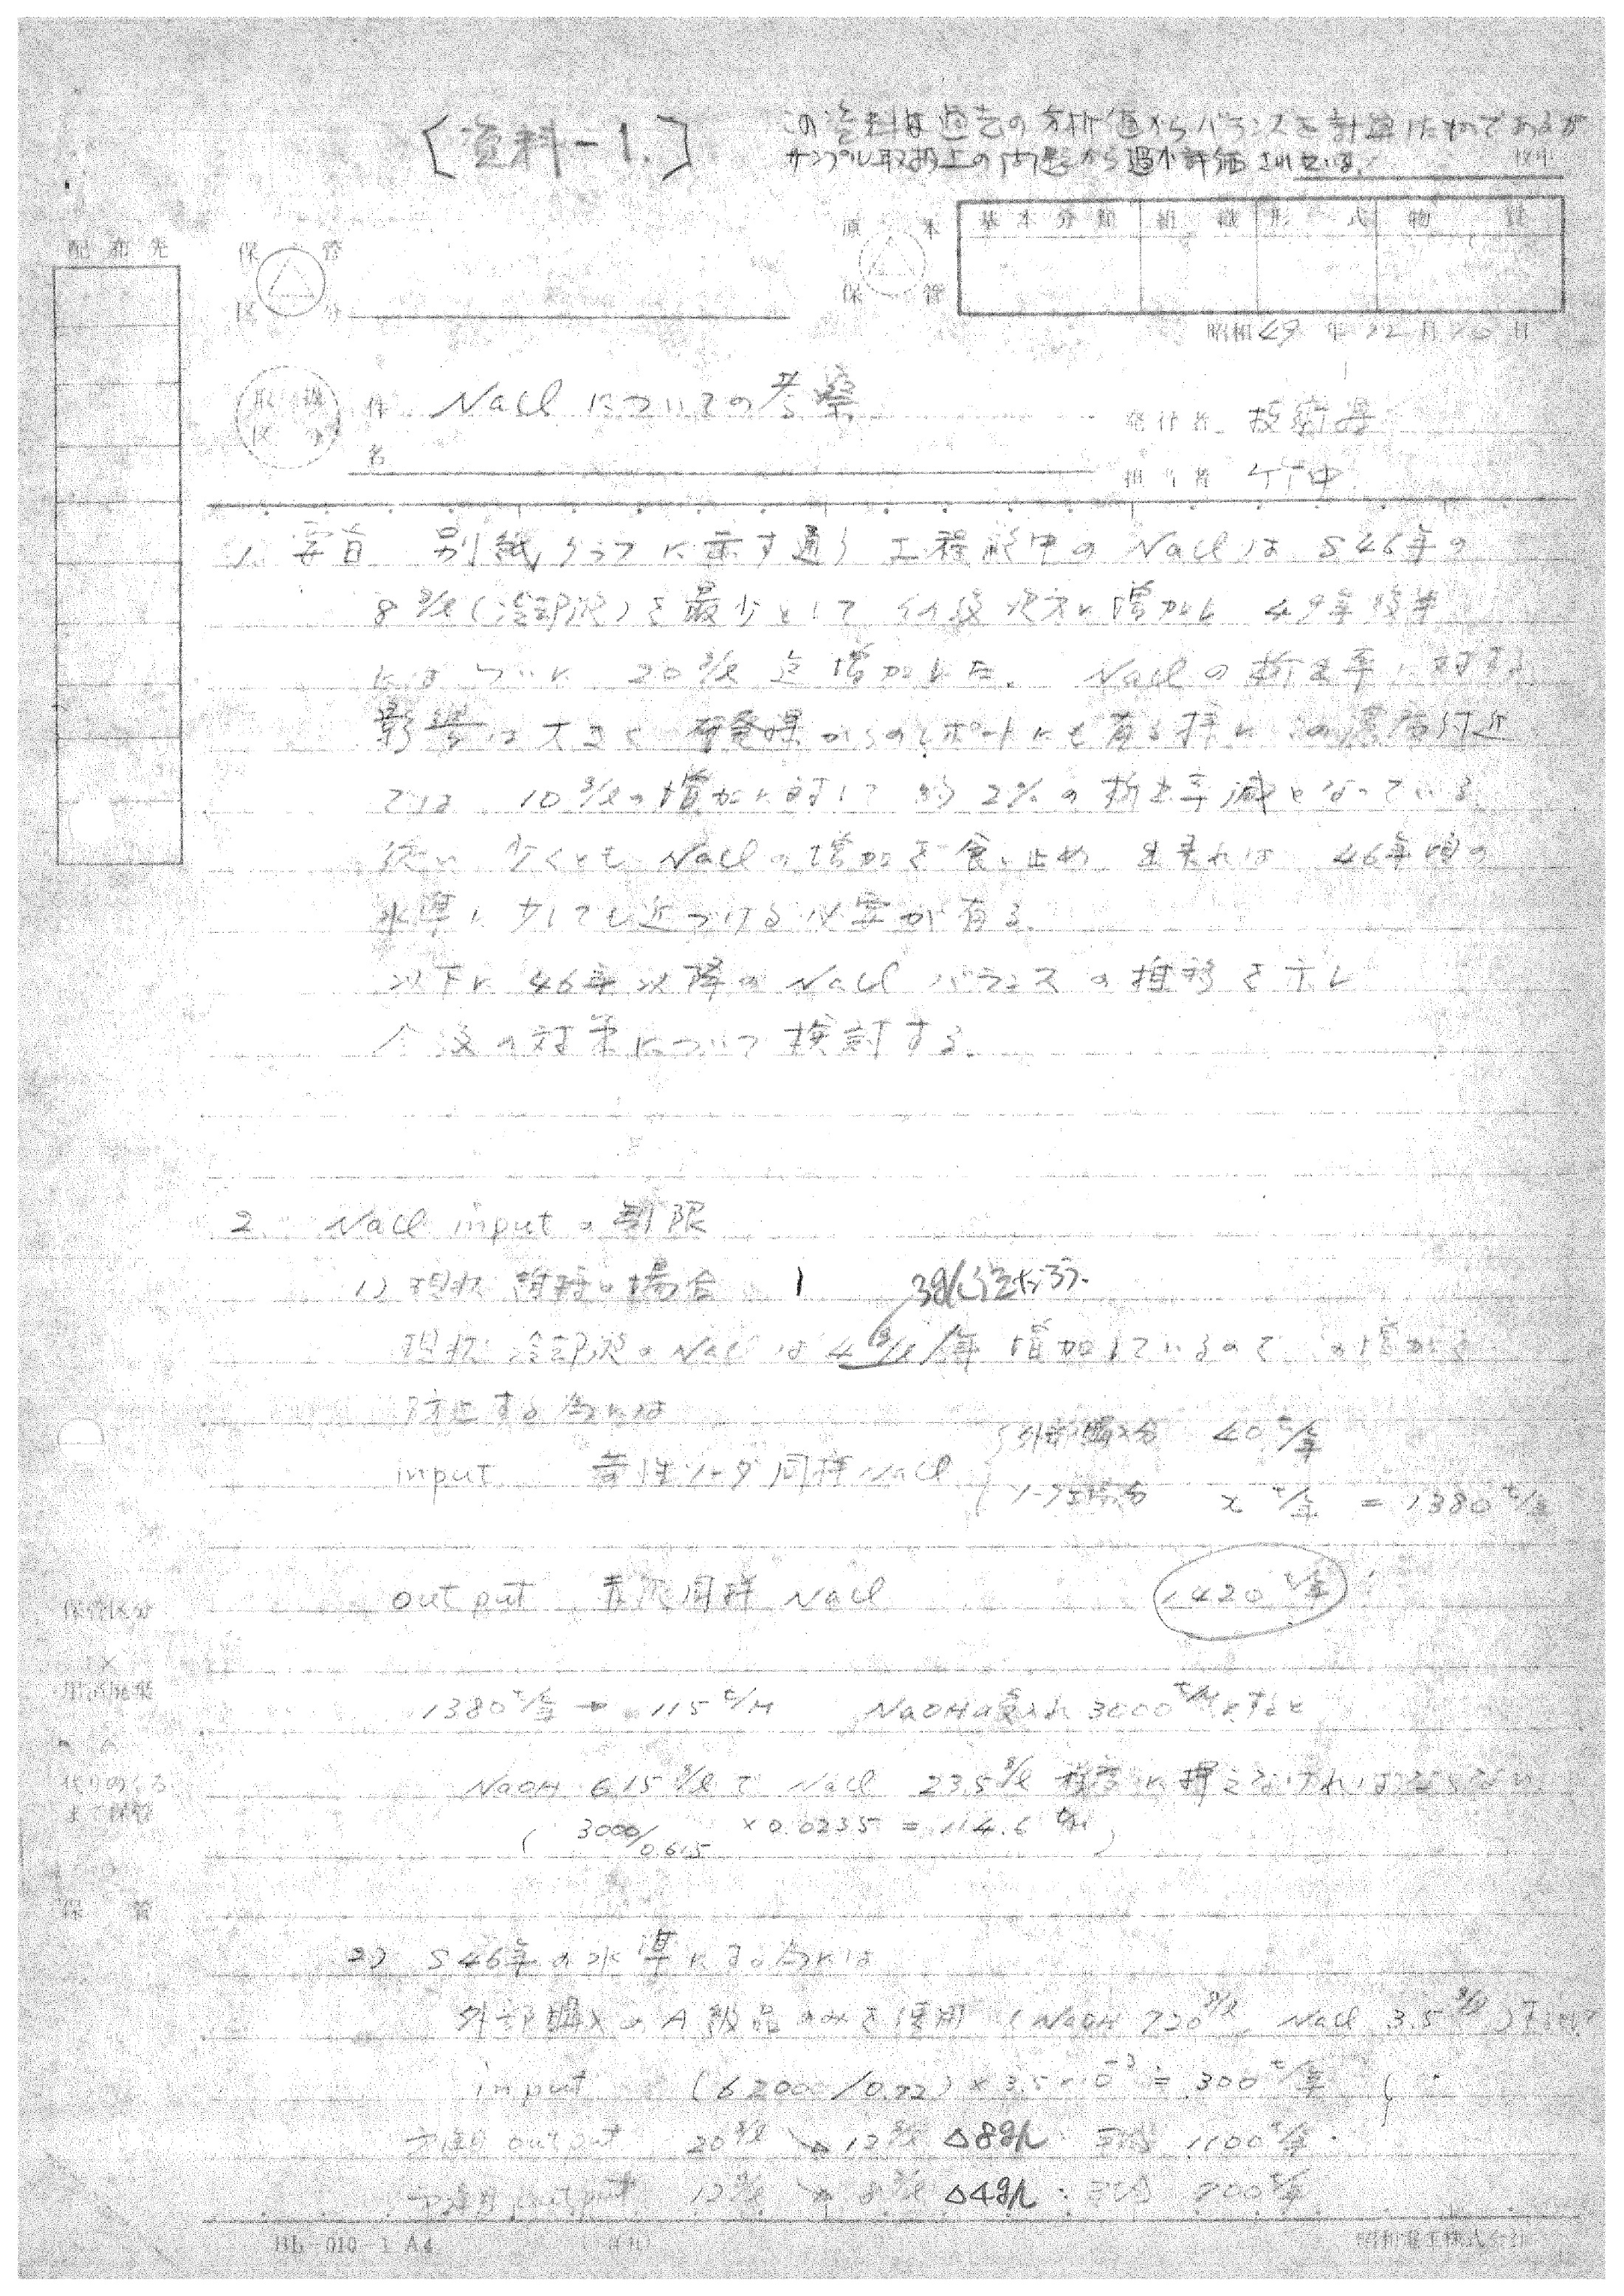 [資料-1.]
この資料は過去の分析値からバランスを計算したものであるが
サンプル取扱上の問題から過小評価されている。
配布先
保管
区分
原本
保管
基本分類 組織 形式 物質
昭和49年12月20日
取扱
区分
件名 NaClについての考察
発行者 技術課
担当者 竹中
1. 要旨 別紙グラフに示す通り 工程液中のNaClは S46年の
8 g/l (冷却液)を最少として その後次第に増加し 49年後半
にはついに 20 g/l 迄増加した。 NaClの析出率に対する
影響は大きく 開発課からのレポートにも有る様に この濃度付近
では 10 g/lの増加に対して 約2%の析出率減となっている。
従い 少くとも NaClの増加を食い止め 出来れば 46年頃の
水準に少しでも近づける必要が有る。
以下に 46年以降のNaCl バランスの推移を示し
今後の対策について検討する。
2. NaCl inputの制限
1) 現状維持の場合
現状 冷却液のNaClは 4 g/l/年 増加しているので この増加を
防止する為には
input 苛性ソーダ同伴NaCl 外部購入分 40 t/年
ソーダ工場分 x t/年 = 1380 t/年
output 赤泥同伴 NaCl 1420 t/年
1380 t/年 → 115 t/M NaOH受入れ 3000 t/Mとすると
NaOH 615 g/lで NaCl 23.5 g/l 程度に押えなければならない
( 3000/0.615 × 0.0235 = 114.6 t/M )
2) S46年の水準にする為には
外部購入のA級品のみを使用 (NaOH 720 g/l, NaCl 3.5 g/l)
input (62000/0.72) × 3.5×10⁻³ = 300 t/年
output 20 g/l → 12 g/l △8g/l 1100 t/年
output 12 g/l → 8 g/l △4g/l 700 t/年
保管区分
保管
HL-010-1 A4
昭和電工株式会社